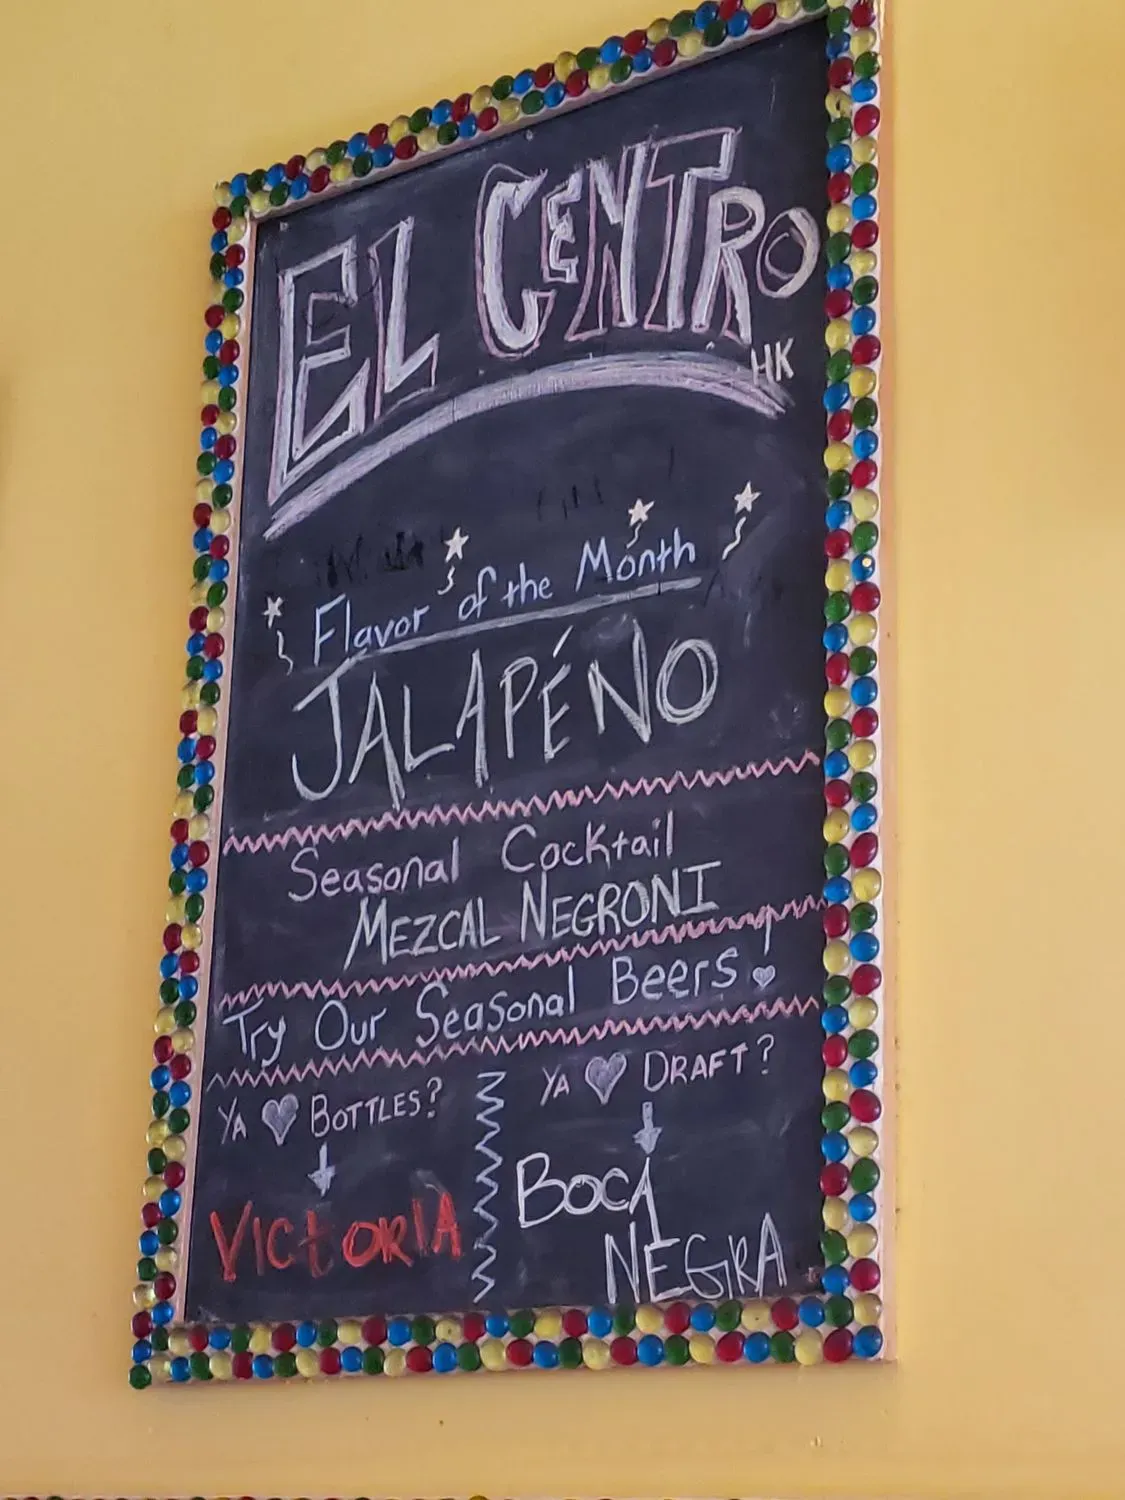 EL CENTRO
HK
Flavor of the Month
JALAPÉNO
Seasonal Cocktail
MEZCAL NEGRONI
Try Our Seasonal Beers!
YA ♥ BOTTLES?
VICTORIA
YA ♥ DRAFT?
BOCA
NEGRA